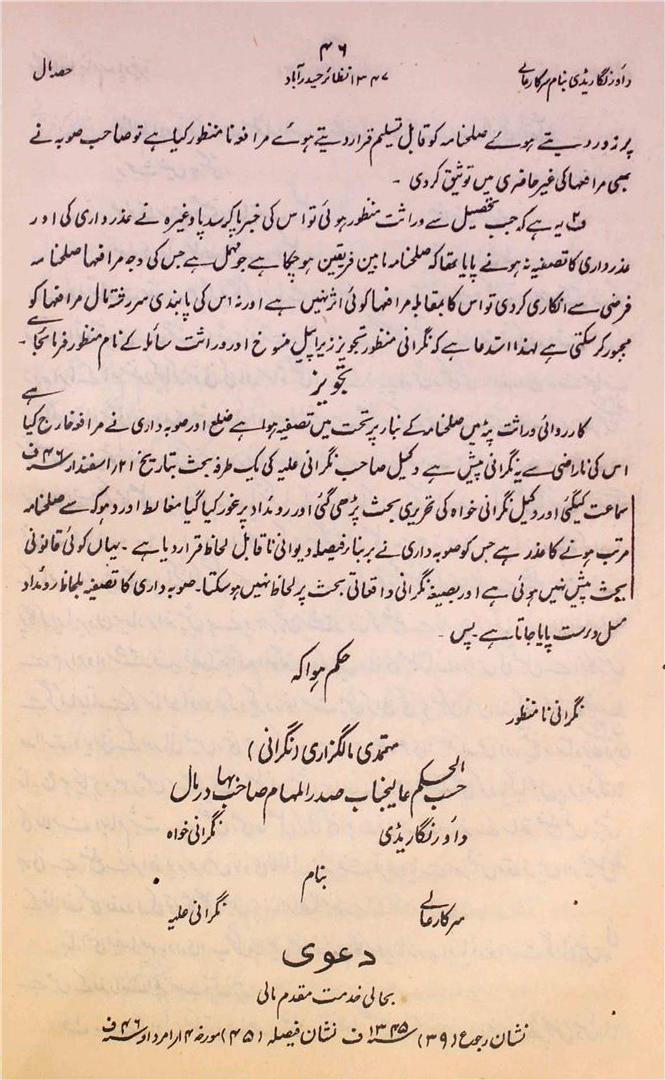 ۴۶
داؤر نگاریڈی بنام سرکارعالی ۱۳۴۷ نظائر حیدرآباد حصہ مال
پر زور دیتے ہوئے صلحنامہ کو قابل تسلیم قرار دیتے ہوئے مرافعہ نامنظور کیا ہے تو صاحب صوبہ نے
بھی مرافعہ کی غیر حاضری میں توثیق کر دی ۔
ف۲ یہ ہے کہ جب تحصیل سے وراثت منظور ہوئی تو اس کی خبر پاکر سدپا وغیرہ نے عذر داری کی اور
عذر داری کا تصفیہ نہ ہونے پایا تھا کہ صلحنامہ مابین فریقین ہو چکا ہے جو مہمل ہے جس کی وجہ مرافعہا صلحنامہ
فرضی سے انکاری کر دی تو اس کا بمقابلہ مرافعہا کوئی اثر نہیں ہے اور نہ اس کی پابندی سررشتہ مال مرافعہا کو
مجبور کر سکتی ہے لہذا استدعا ہے کہ نگرانی منظور تجویز زیر اپیل منسوخ اور وراثت سائلہ کے نام منظور فرمائی جائے ۔
تجویز
کارروائی وراثت پڑیں صلحنامہ کے بناء پر تحت میں تصفیہ ہوا ہے ضلع اور صوبہ داری نے مرافعہ خارج کیا ہے
اس کی ناراضی سے یہ نگرانی پیش ہے وکیل صاحب نگرانی علیہ کی یک طرفہ بحث بتاریخ ۲۱ اسفندار ۴۶ ف
سماعت کیگئی اور وکیل نگرانی خواہ کی تحریری بحث پڑھی گئی اور روئداد پر غور کیا گیا مغالطہ اور دھوکہ سے صلحنامہ
مرتب ہونے کا عذر ہے جس کو صوبہ داری نے بر بنار فیصلہ دیوانی ناقابل لحاظ قرار دیا ہے ۔ یہاں کوئی قانونی
بحث پیش نہیں ہوئی ہے اور بصیغہ نگرانی واقعاتی بحث پر لحاظ نہیں ہو سکتا ۔ صوبہ داری کا تصفیہ بلحاظ روئداد
مسل درست پایا جاتا ہے ۔ پس ۔
حکم ہوا کہ
نگرانی نامنظور
معتمدی مالگزاری (نگرانی)
حسب الحکم عالیجناب صدر المہام صاحب بہادر مال
داؤر نگاریڈی نگرانی خواہ
بنام
سرکارعالی نگرانی علیہ
دعوی
بحالی خدمت مقدم مالی
نشان رجوع (۳۹) ۱۳۴۵ ف نشان فیصلہ (۴۵) مورخہ ۱۴ امرداد ۴۶ ف